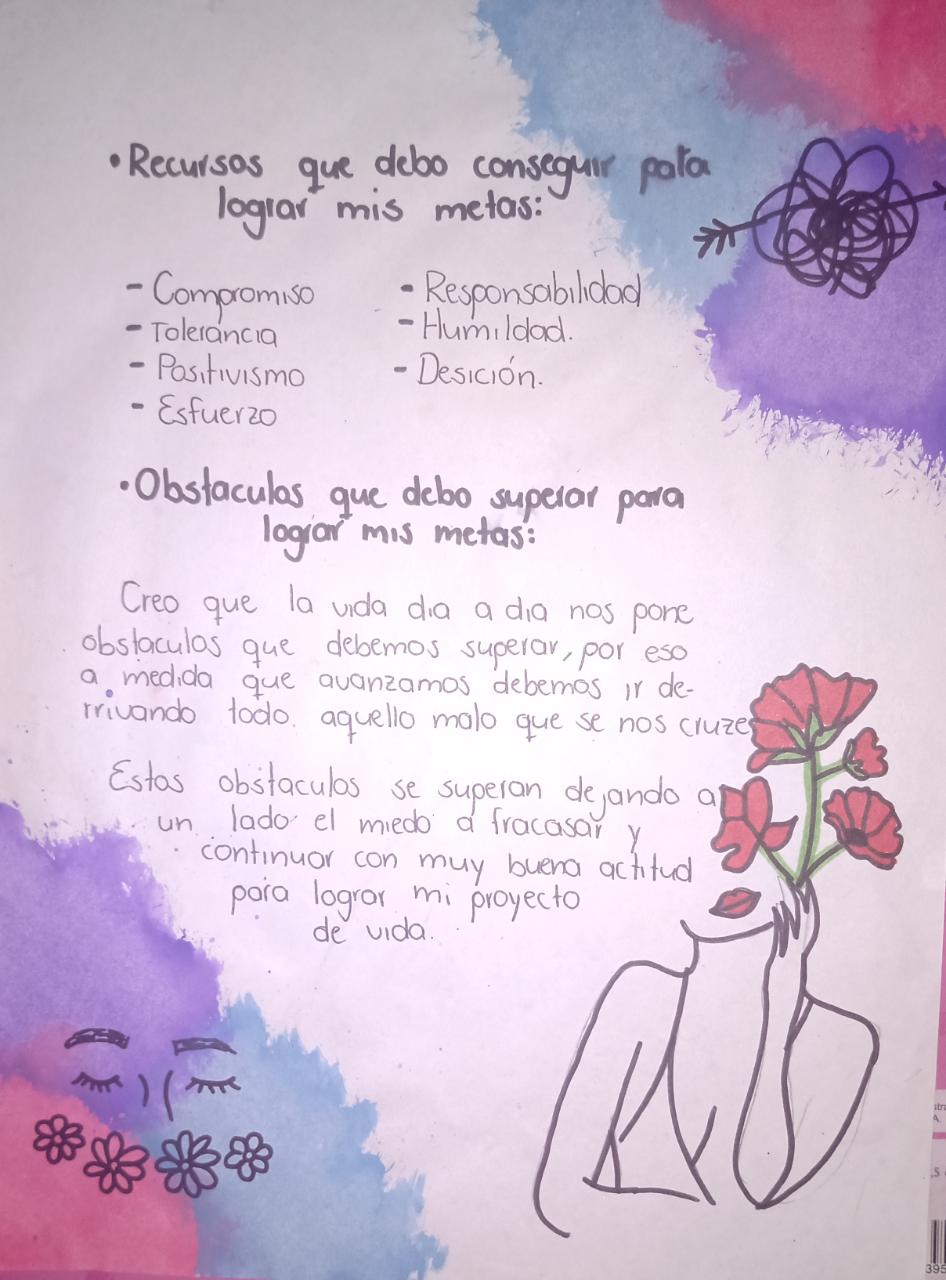 • Recursos que debo conseguir para
lograr mis metas:
- Compromiso
- Tolerancia
- Positivismo
- Esfuerzo
- Responsabilidad
- Humildad.
- Desición.
• Obstaculos que debo superar para
lograr mis metas:
Creo que la vida dia a dia nos pone
obstaculos que debemos superar, por eso
a medida que avanzamos debemos ir de-
rrivando todo. aquello malo que se nos cruze
Estos obstaculos se superan dejando a
un lado el miedo a fracasar y
continuar con muy buena actitud
para lograr mi proyecto
de vida.
395